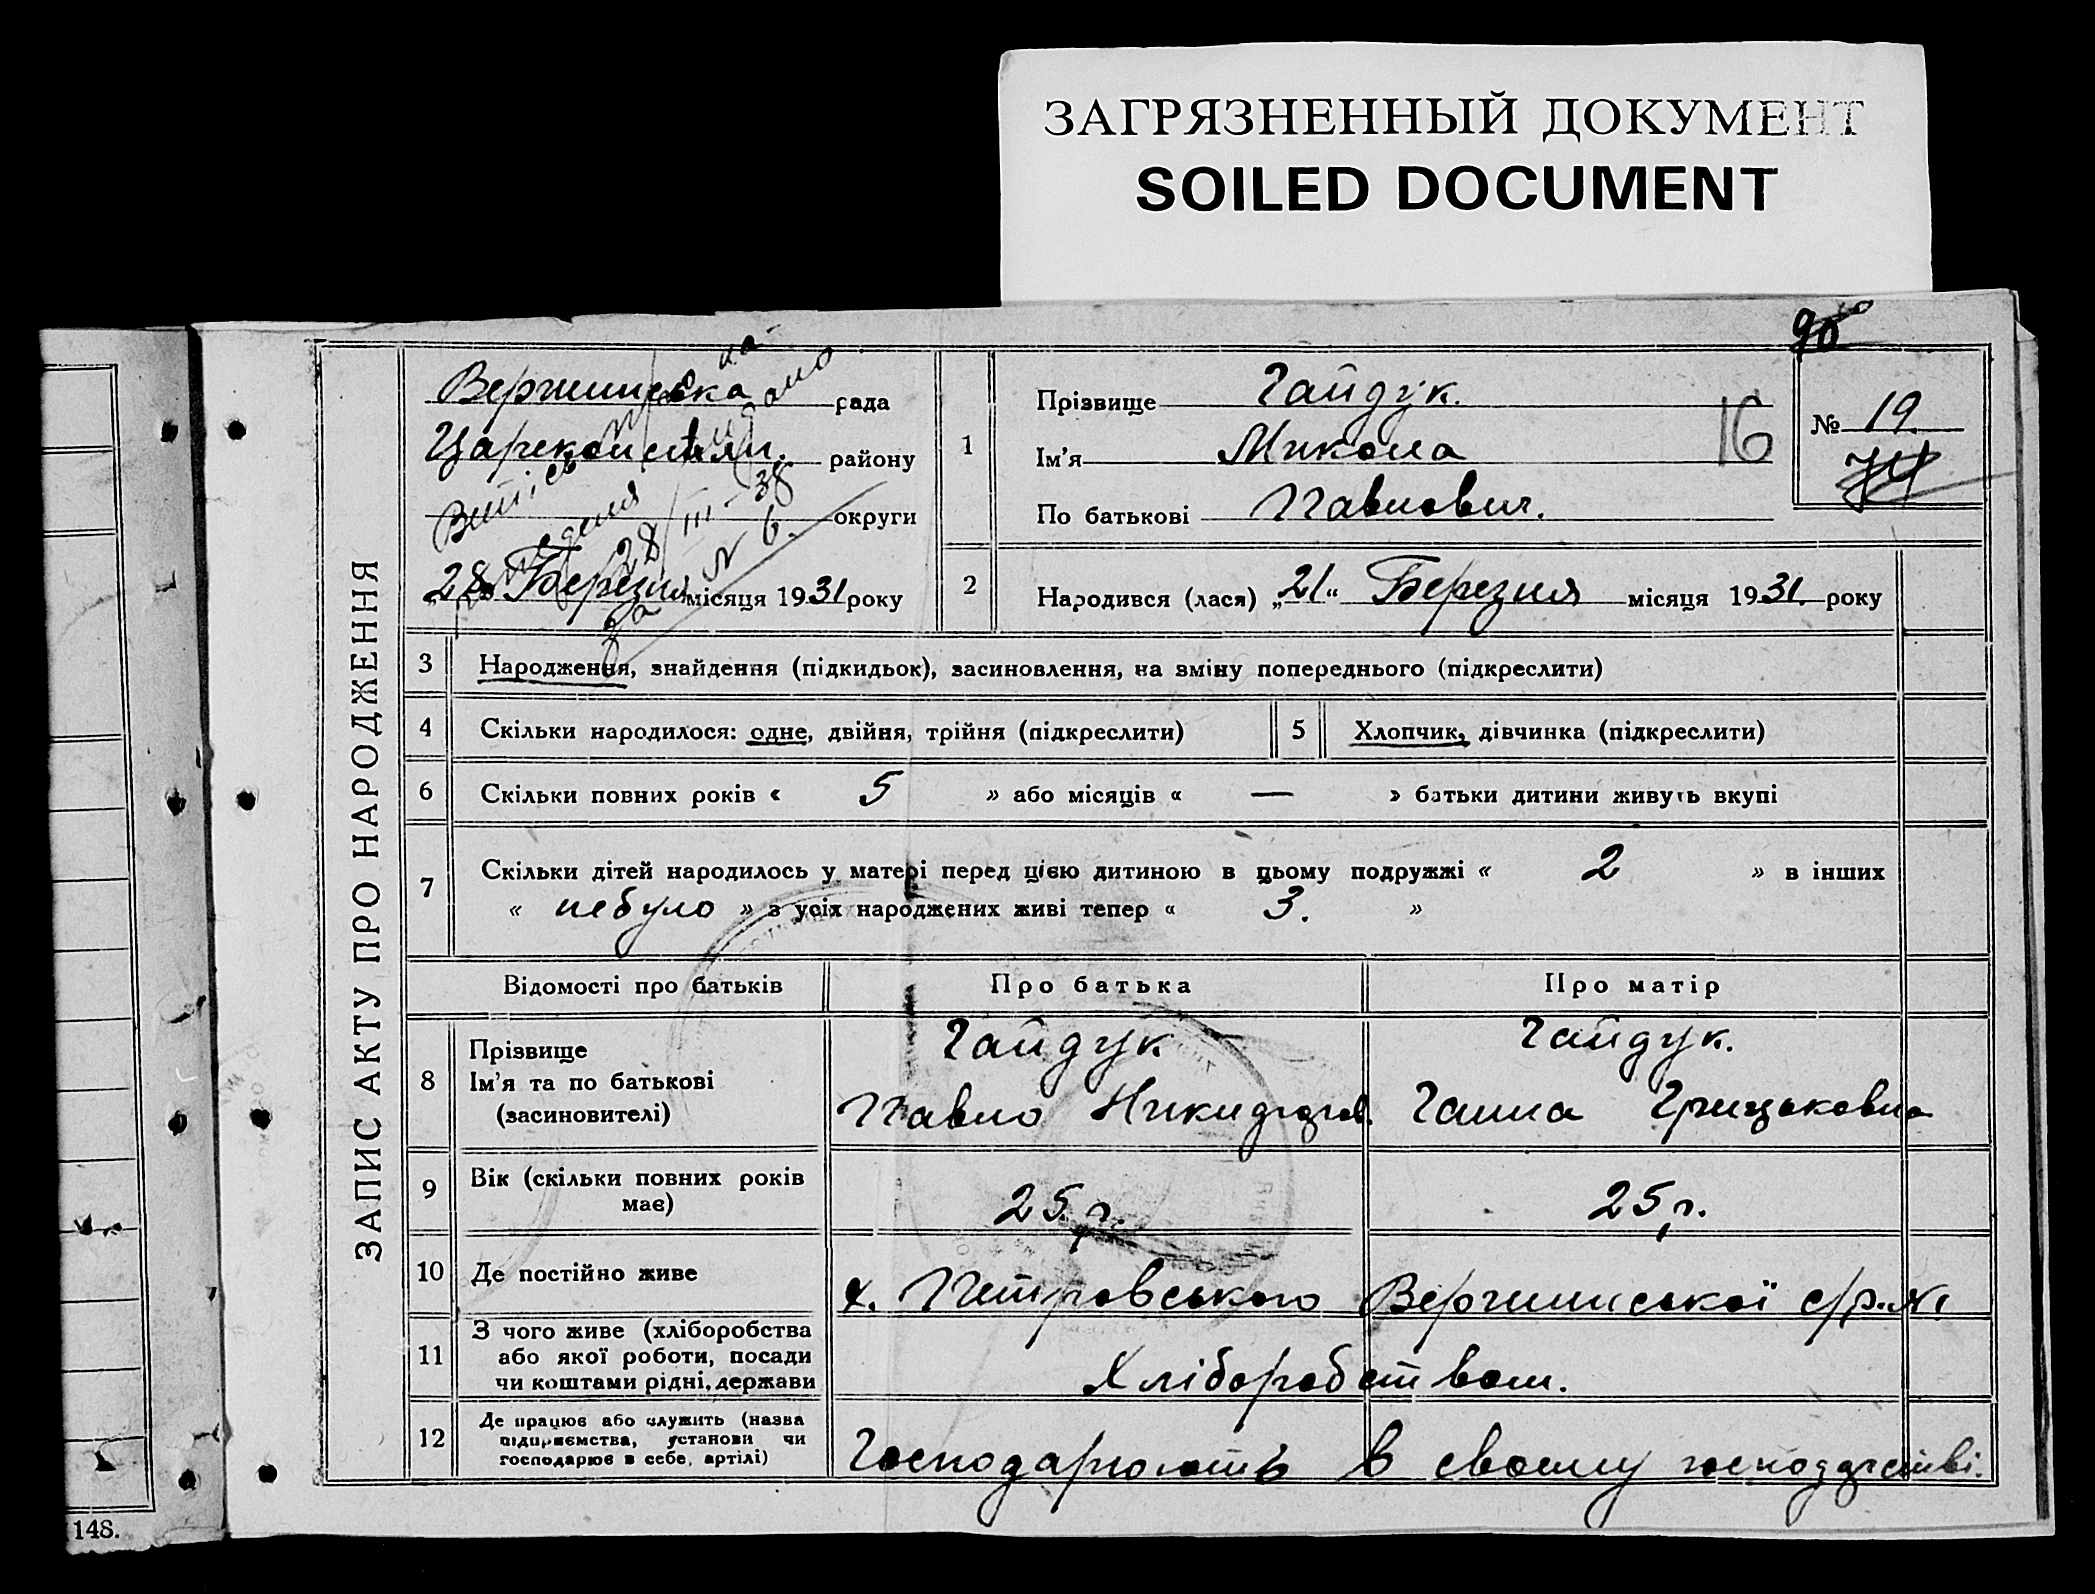 ЗАГРЯЗНЕННЫЙ ДОКУМЕНТ
SOILED DOCUMENT
ЗАПИС АКТУ ПРО НАРОДЖЕННЯ
рада
району
округи
28 Березня місяця 1931 року
28/III-38
за № 6.
1
Прізвище Гайдук.
Ім'я Микола
По батькові Павлович.
16
№ 19.
74
2
Народився (лася) „21“ Березня місяця 1931. року
3 Народження, знайдення (підкидьок), засиновлення, на зміну попереднього (підкреслити)
4 Скільки народилося: одне, двійня, трійня (підкреслити) 5 Хлопчик, дівчинка (підкреслити)
6 Скільки повних років « 5 » або місяців « — » батьки дитини живуть вкупі
7 Скільки дітей народилось у матері перед цією дитиною в цьому подружжі « 2 » в інших
« небуло » з усіх народжених живі тепер « 3. »
Відомості про батьків Про батька Про матір
8 Прізвище
Ім'я та по батькові
(засиновителі)
Гайдук Гайдук.
Павло Ганна Грицьковна
9 Вік (скільки повних років
має)
25 р. 25 р.
10 Де постійно живе
х. Петровського
11 З чого живе (хліборобства
або якої роботи, посади
чи коштами рідні, держави
Хліборобством.
12 Де працює або служить (назва
підприємства, установи чи
господарює в себе, артілі)
Господарюють в своему господарстві.
148.